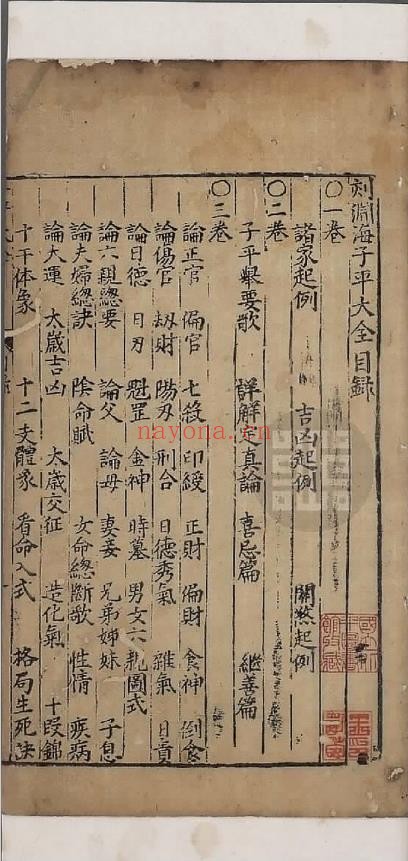 刻淵海子平大全目録
〇一卷
諸家起例 吉凶起例 關煞起例
〇二卷
子平舉要歌 詳解定真論 喜忌篇 繼善篇
〇三卷
論正官 偏官 七殺 印綬 正財 偏財 食神 倒食
論傷官 刼財 陽刃 刑合 日德秀氣 雜氣 日貴
論日德 日刃 魁罡 金神 時墓 男女六親圖式
論六親總要 論父 論母 妻妾 兄弟姊妹 子息
論夫婦總訣 陰命賦 女命總斷歌 性情 疾病
論大運 太歲吉凶 太歲交征 造化氣 十段錦
十干体象 十二支體象 看命入式 格局生死訣
nayona.cn